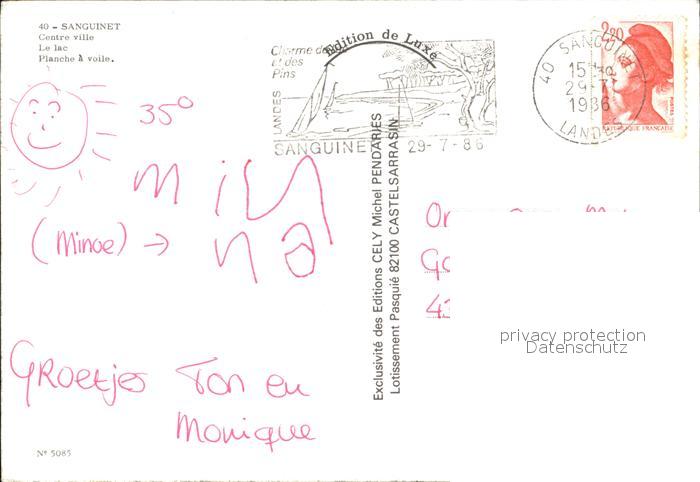 40 - SANGUINET
Centre ville
Le lac
Planche à voile.
Edition de Luxe
Charme
et des
Pins
LANDES
SANGUINET 29-7-86
40 SANGUINET
29-7
1986
LANDES
2,20
REPUBLIQUE FRANÇAISE
35°
(Minoe) →
na
Groetjes Ton en
Monique
Exclusivité des Editions CELY Michel PENDARIES
Lotissement Pasquié 82100 CASTELSARRASIN
privacy protection
Datenschutz
N° 5085